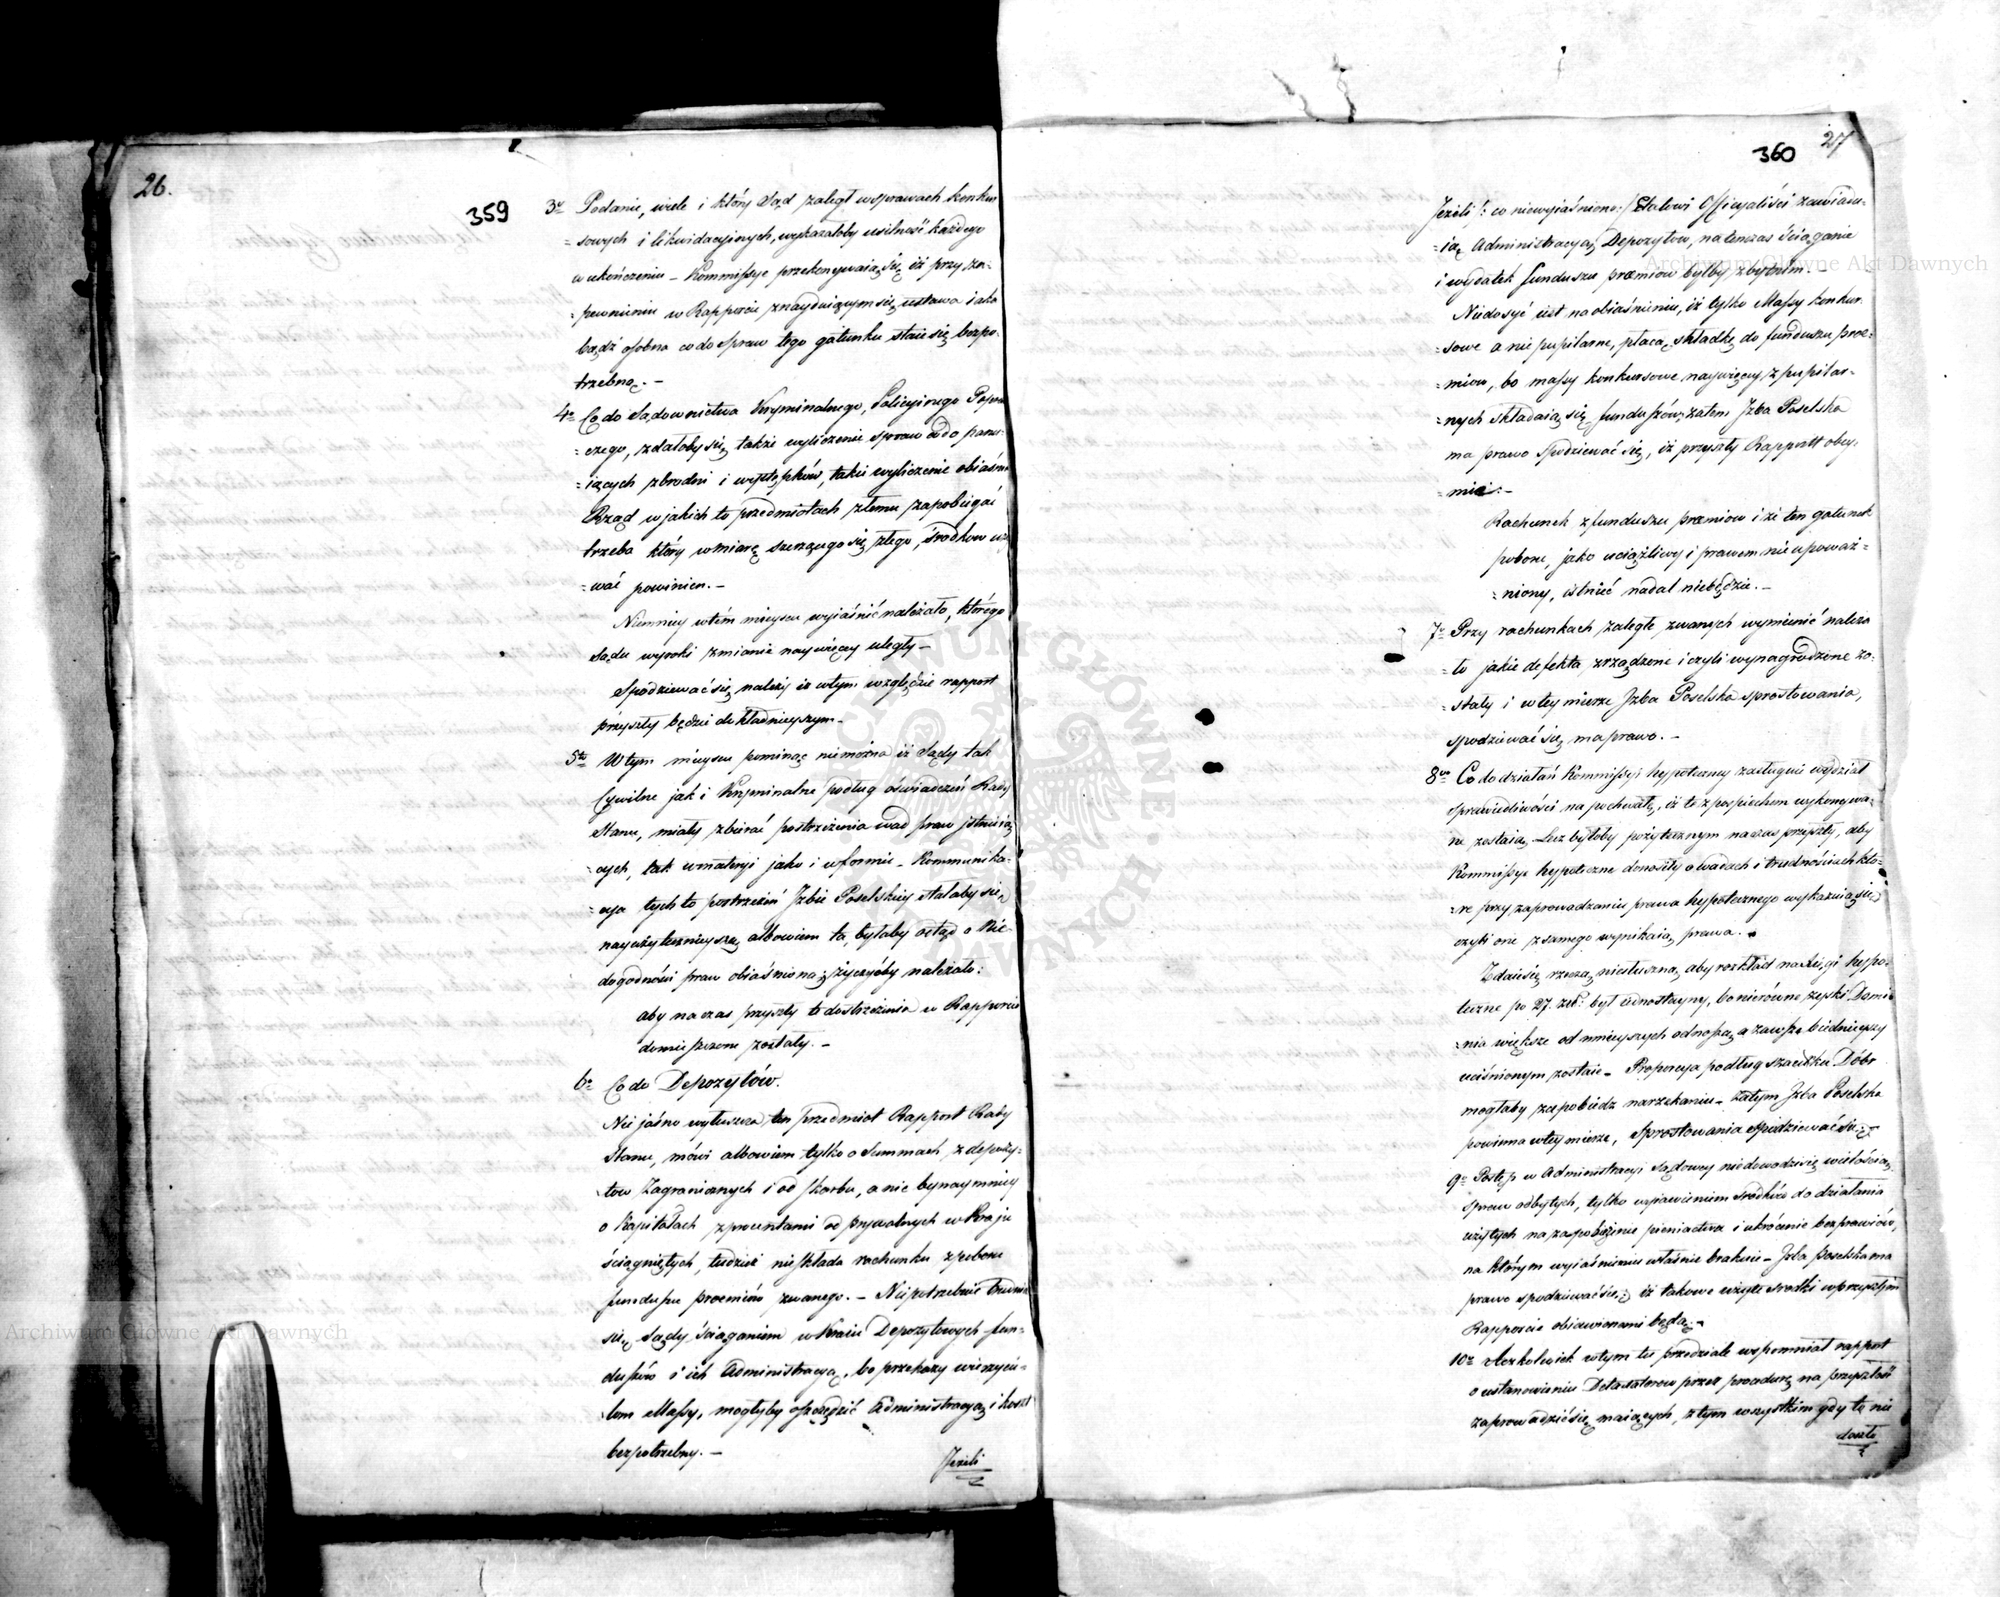 26.
359
3o Podanie, wiele i który Sąd zaległ w sprawach konkur
= sowych i likwidacyinych, wykazałoby usilność każdego
w ukończeniu – Kommissye przekonywaią się iż przy za=
= pewnieniu w Rapporcie znayduiącym się, ustawa iaka
bądź osobna co do spraw tego gatunku staie się bezpo=
trzebną. –
4o Co do Sądownictwa Kryminalnego, Policyinego Popra
= czego, zdałoby się także wyliczenie spraw co do panu=
= iących zbrodni i występków, takie wyliczenie obiaśni
Rząd w jakich to przedmiotach złemu zapobiegać
trzeba który w miarę szerzącego się złego, środków uży
= wać powinien. –
Niemniey w tém mieyscu wyiaśnić należało, którego
Sądu wyroki zmianie naywięcey uległy –
Spodziewać się należy iż w tym względzie rapport
przyszły będzie dokładnieyszym –
5to W tym mieyscu pominąć niemożna iż Sądy tak
Cywilne jak i Kryminalne podług oświadczeń Rady
Stanu, miały zbierać postrzeżenia wad praw istnieią
= cych, tak w materyi jako i w formie – Kommunika=
= cya tych to postrzeżeń Izbie Poselskiey stałaby się
nayużytecznieyszą albowiem ta, byłaby ocląd o Nie=
dogodności praw obiaśnioną; życzyćby należało:
aby na czas przyszły te dostrzeżenia w Rapporcie
domieszczone zostały. –
6o Co do Depozytów.
Nie jaśno wytuszcza ten przedmiot Rapport Rady
Stanu, mówi albowiem tylko o Summach, z depozy=
= tow Zagranicznych i od skarbu, a nie bynaymniey
o Kapitałach z procentami od prywatnych w Kraju
ściągniętych, tudzież nieskłada rachunku z poboru
funduszu praemiów zwanego. – Niepotrzebnie trudnią
się Sądy ściąganiem w Kraiu Depozytowych fun=
duszów i ich Administracyą, bo przekazy wierzycie=
= lom Massy, mogłyby oszczędzić Administracyą i koszt
bezpotrzebny. –
Jeżeli
360
27
Jeżeli /: co niewyiaśniono :/ Etatowi Officyaliści zawiadu=
= ią Administracyą Depozytow, natenczas ściąganie
i wydatek funduszu praemiow byłby zbytnim. –
Niedosyć iest na obiaśnieniu, iż tylko Massy konkur=
= sowe a nie pupilarne, płacą składkę do funduszu prae=
= miow, bo massy konkursowe naywięcey z pupilar=
= nych składaią się funduszów, zatem Izba Poselska
ma prawo spodziewać się, iż przyszły Rapport obey=
= mie: –
Rachunek z funduszu praemiow i że ten gatunek
poboru, jako uciążliwy i prawem nieupoważ=
= niony, istnieć nadal niebędzie. –
7o Przy rachunkach zaległe zwanych wymienić należa
= ło jakie defekta zrządzone i czyli wynagrodzone zo=
= stały i w tey mierze Izba Poselska sprostowania,
spodziewać się ma prawo. –
8vo Co do działań Kommissyi hypoteczney zasługuie wydział
sprawiedliwości na pochwałę, iż te z pospiechem wykonywa=
ne zostaią. Lecz byłoby pożytecznym na czas przyszły, aby
Kommissye hypoteczne donosiły o wadach i trudnościach któ=
= re przy zaprowadzaniu prawa hypotecznego wykazuią się
czyli one z samego wynikaią prawa. –
Zdaie się rzeczą niesłuszną, aby rozkład na Księgi hypo=
teczne po 27. zł: był iednostayny, bo nierówne zyski Domi
= nia większe od mnieyszych odnoszą a zawsze biednieyszy
uciśnionym zostaie – Proporcya podług szacunku Dóbr
mogłaby zapobiedz narzekaniu – Zatym Izba Poselska
powinna w tey mierze, Sprostowania spodziewać się. –
9o Postęp w Administracyi Sądowey niedowodzi się wielością
spraw odbytych, tylko wyiawieniem środków do działania
użytych na zapobieżenie pieniactwa i ukrócenie bezprawiów,
na którym wyiaśnieniu właśnie brakuie – Izba Poselska ma
prawo spodziewać się, iż takowe użyte środki w przyszłym
Rapporcie obiawionemi będą. –
10o Aczkolwiek w tym tu przedziale wspomniał rapport
o ustanowieniu Delatatorow przez procedurę na przyszłość
zaprowadzić się maiących, z tym wszystkim gdy ta nie
doszła
Archiwum Główne Akt Dawnych
Archiwum Główne Akt Dawnych
ARCHIWUM GŁÓWNE AKT DAWNYCH